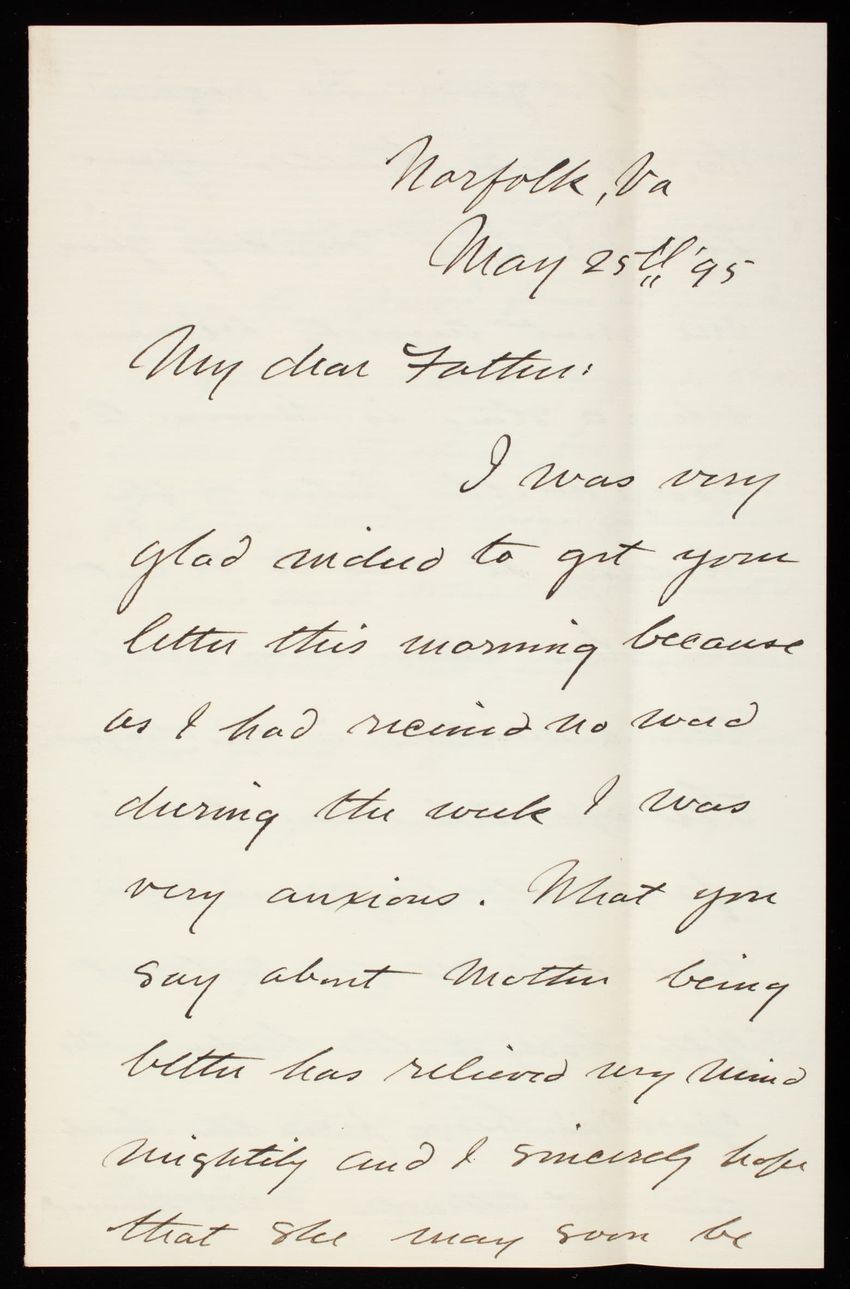 Norfolk, Va
May 25th '95
My dear Father:
I was very
glad indeed to get your
letter this morning because
as I had received no word
during the week I was
very anxious. What you
say about Mother being
better has relieved my mind
mightily and I sincerely hope
that she may soon be